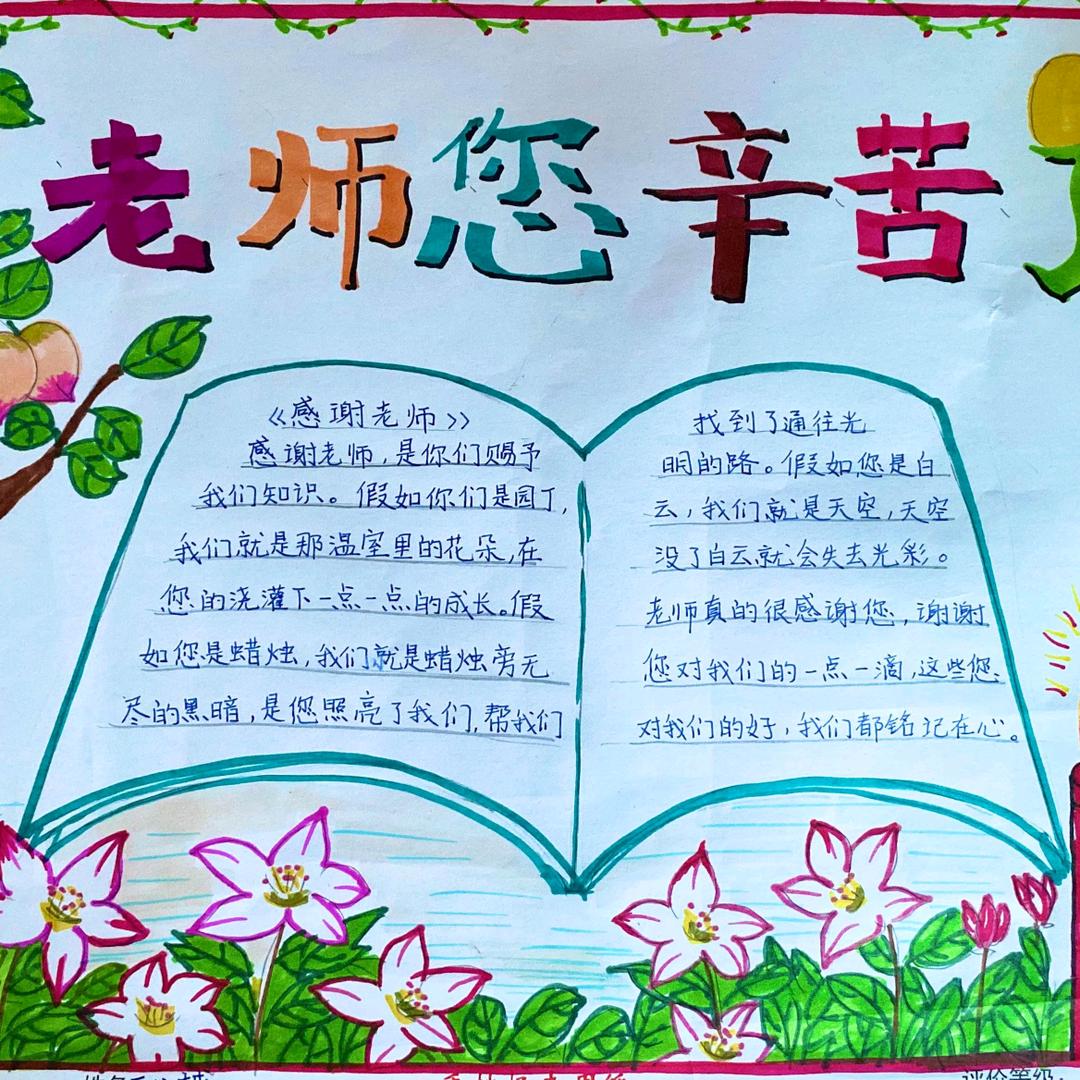 老师您辛苦了
《感谢老师》
感谢老师，是你们赐予
我们知识。假如你们是园丁，
我们就是那温室里的花朵，在
您的浇灌下一点一点的成长。假
如您是蜡烛，我们就是蜡烛旁无
尽的黑暗，是您照亮了我们，帮我们
找到了通往光
明的路。假如您是白
云，我们就是天空，天空
没了白云就会失去光彩。
老师真的很感谢您，谢谢
您对我们的一点一滴，这些您
对我们的好，我们都铭记在心。
评价等级：